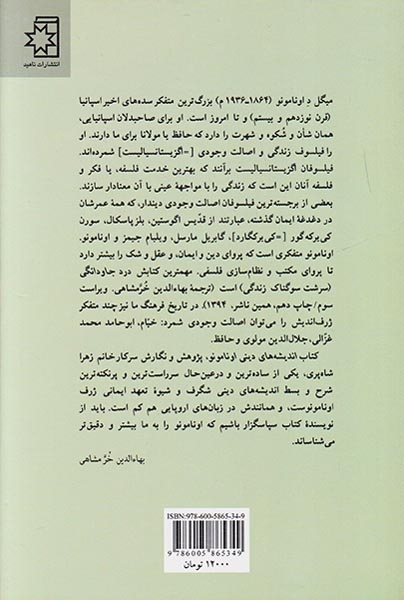 انتشارات ناهید
میگل د اونامونو (۱۸۶۴ـ۱۹۳۶ م) بزرگ‌ترین متفکر سده‌های اخیر اسپانیا
(قرن نوزدهم و بیستم) و تا امروز است. او برای صاحبدلان اسپانیایی،
همان شأن و شُکوه و شهرت را دارد که حافظ یا مولانا برای ما دارند. او
را فیلسوف زندگی و اصالت وجودی [=اگزیستانسیالیست] شمرده‌اند.
فیلسوفان اگزیستانسیالیست برآنند که بهترین خدمت فلسفه، یا فکر و
فلسفه آنان این است که زندگی را با مواجههٔ عینی با آن معنادار سازند.
بعضی از برجسته‌ترین فیلسوفان اصالت وجودی دیندار، که همهٔ عمرشان
در دغدغهٔ ایمان گذشته، عبارتند از قدّیس اگوستین، بلزپاسکال، سورن
کی‌یرکه‌گور [=کی‌یرکگارد]، گابریل مارسل، ویلیام جیمز و اونامونو.
اونامونو متفکری است که پروای دین و ایمان، و عقل و شک را بیشتر دارد
تا پروای مکتب و نظام‌سازی فلسفی. مهمترین کتابش درد جاودانگی
(سرشت سوگناک زندگی) است (ترجمهٔ بهاءالدین خُرّمشاهی. ویراست
سوم/چاپ دهم، همین ناشر، ۱۳۹۴). در تاریخ فرهنگ ما نیز چند متفکر
ژرف‌اندیش را می‌توان اصالت وجودی شمرد: خیّام، ابوحامد محمد
غزّالی، جلال‌الدین مولوی و حافظ.
کتاب اندیشه‌های دینی اونامونو، پژوهش و نگارش سرکار خانم زهرا
شاه‌پری، یکی از ساده‌ترین و درعین‌حال سرراست‌ترین و پرنکته‌ترین
شرح و بسط اندیشه‌های دینی شگرف و شیوهٔ تعهد ایمانی ژرف
اونامونوست، و همانندش در زبان‌های اروپایی هم کم است. باید از
نویسندهٔ کتاب سپاسگزار باشیم که اونامونو را به ما بیشتر و دقیق‌تر
می‌شناساند.
بهاءالدین خُرّمشاهی
ISBN:978-600-5865-34-9
9 786005 865349
۱۲۰۰۰ تومان